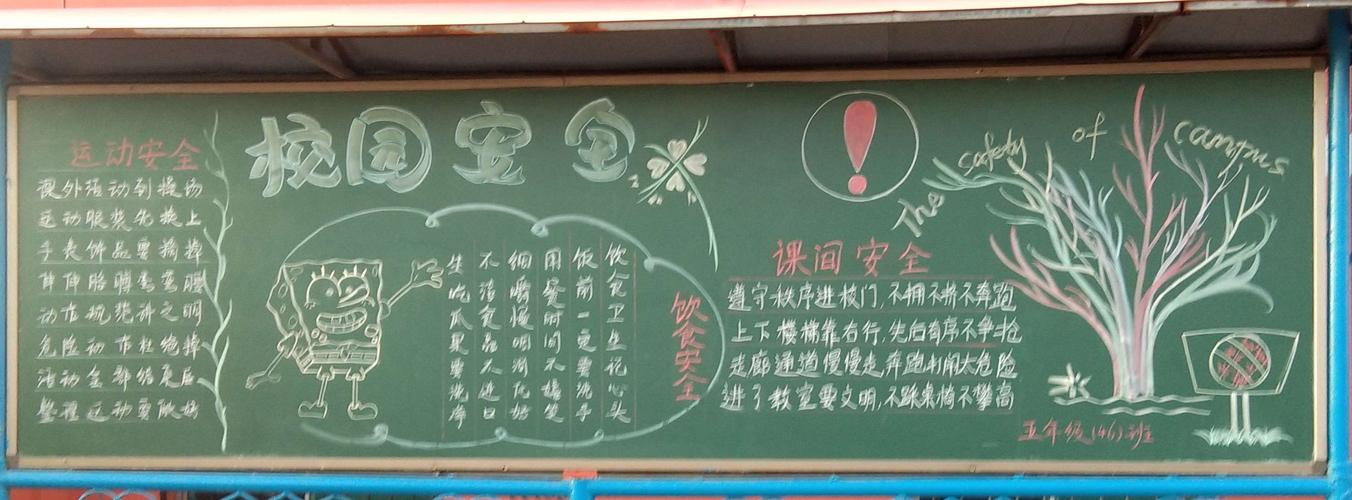 校园安全
运动安全
课外活动到操场
运动服装先换上
手表饰品要摘掉
伸伸胳膊弯弯腰
动作规范讲文明
危险动作杜绝掉
活动全部结束后
整理运动要做好
饮食安全
饮食卫生记心头
饭前一定要洗手
用餐时间不嬉笑
细嚼慢咽消化好
不洁食品不进口
生吃瓜果要洗净
The safety of campus
课间安全
遵守秩序进校门,不拥不挤不奔跑
上下楼梯靠右行,先后有序不争抢
走廊通道慢慢走 奔跑打闹太危险
进了教室要文明,不跃桌椅不攀高
五年级(46)班